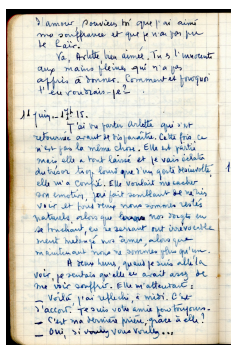 d'amour, souviens toi que j'ai aimé
ma souffrance et que je n'ai pas pu
te haïr.
Va, Arlette bien aimée. Tu es l'innocente
aux mains pleines qui n'a pas
appris à donner. Comment et pourquoi
t'en voudrais-je?
11 juin 15.
J'ai vu partir Arlette qui s'est
retournée avant de disparaître. Cette fois, ce
n'est pas la même chose. Elle est partie
mais elle a tout laissé et je vais
trésor trop lourd que d'un geste
elle m'a confié. Elle voulait me cacher
son émotion, j'ai fait semblant de ne rien
voir et tous deux nous sommes restés
naturels, alors que nos doigts en
se touchant, en se serrant ont
nos âmes, alors que
maintenant nous ne sommes plus qu'un.
A deux heures, quand je suis allé la
voir, je sentais qu'elle en avait assez de
me voir souffrir. Elle m'attendait:
— Voilà, j'ai réfléchi, à midi. C'est
d'accord. Je suis votre amie pour toujours.
— C'est ma dernière prière, grâce à elle?
— Oui, si vous voulez...